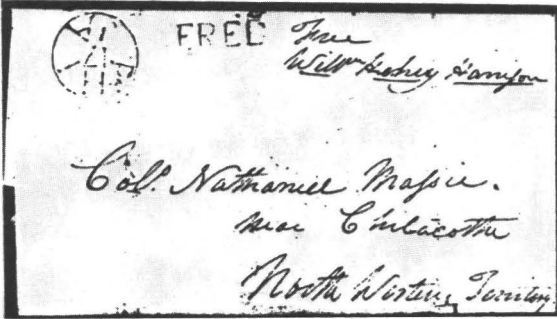 FREE Free
Willm Henry Harrison
Coll. Nathaniel Massie.
near Chilacothe
North Western Territory